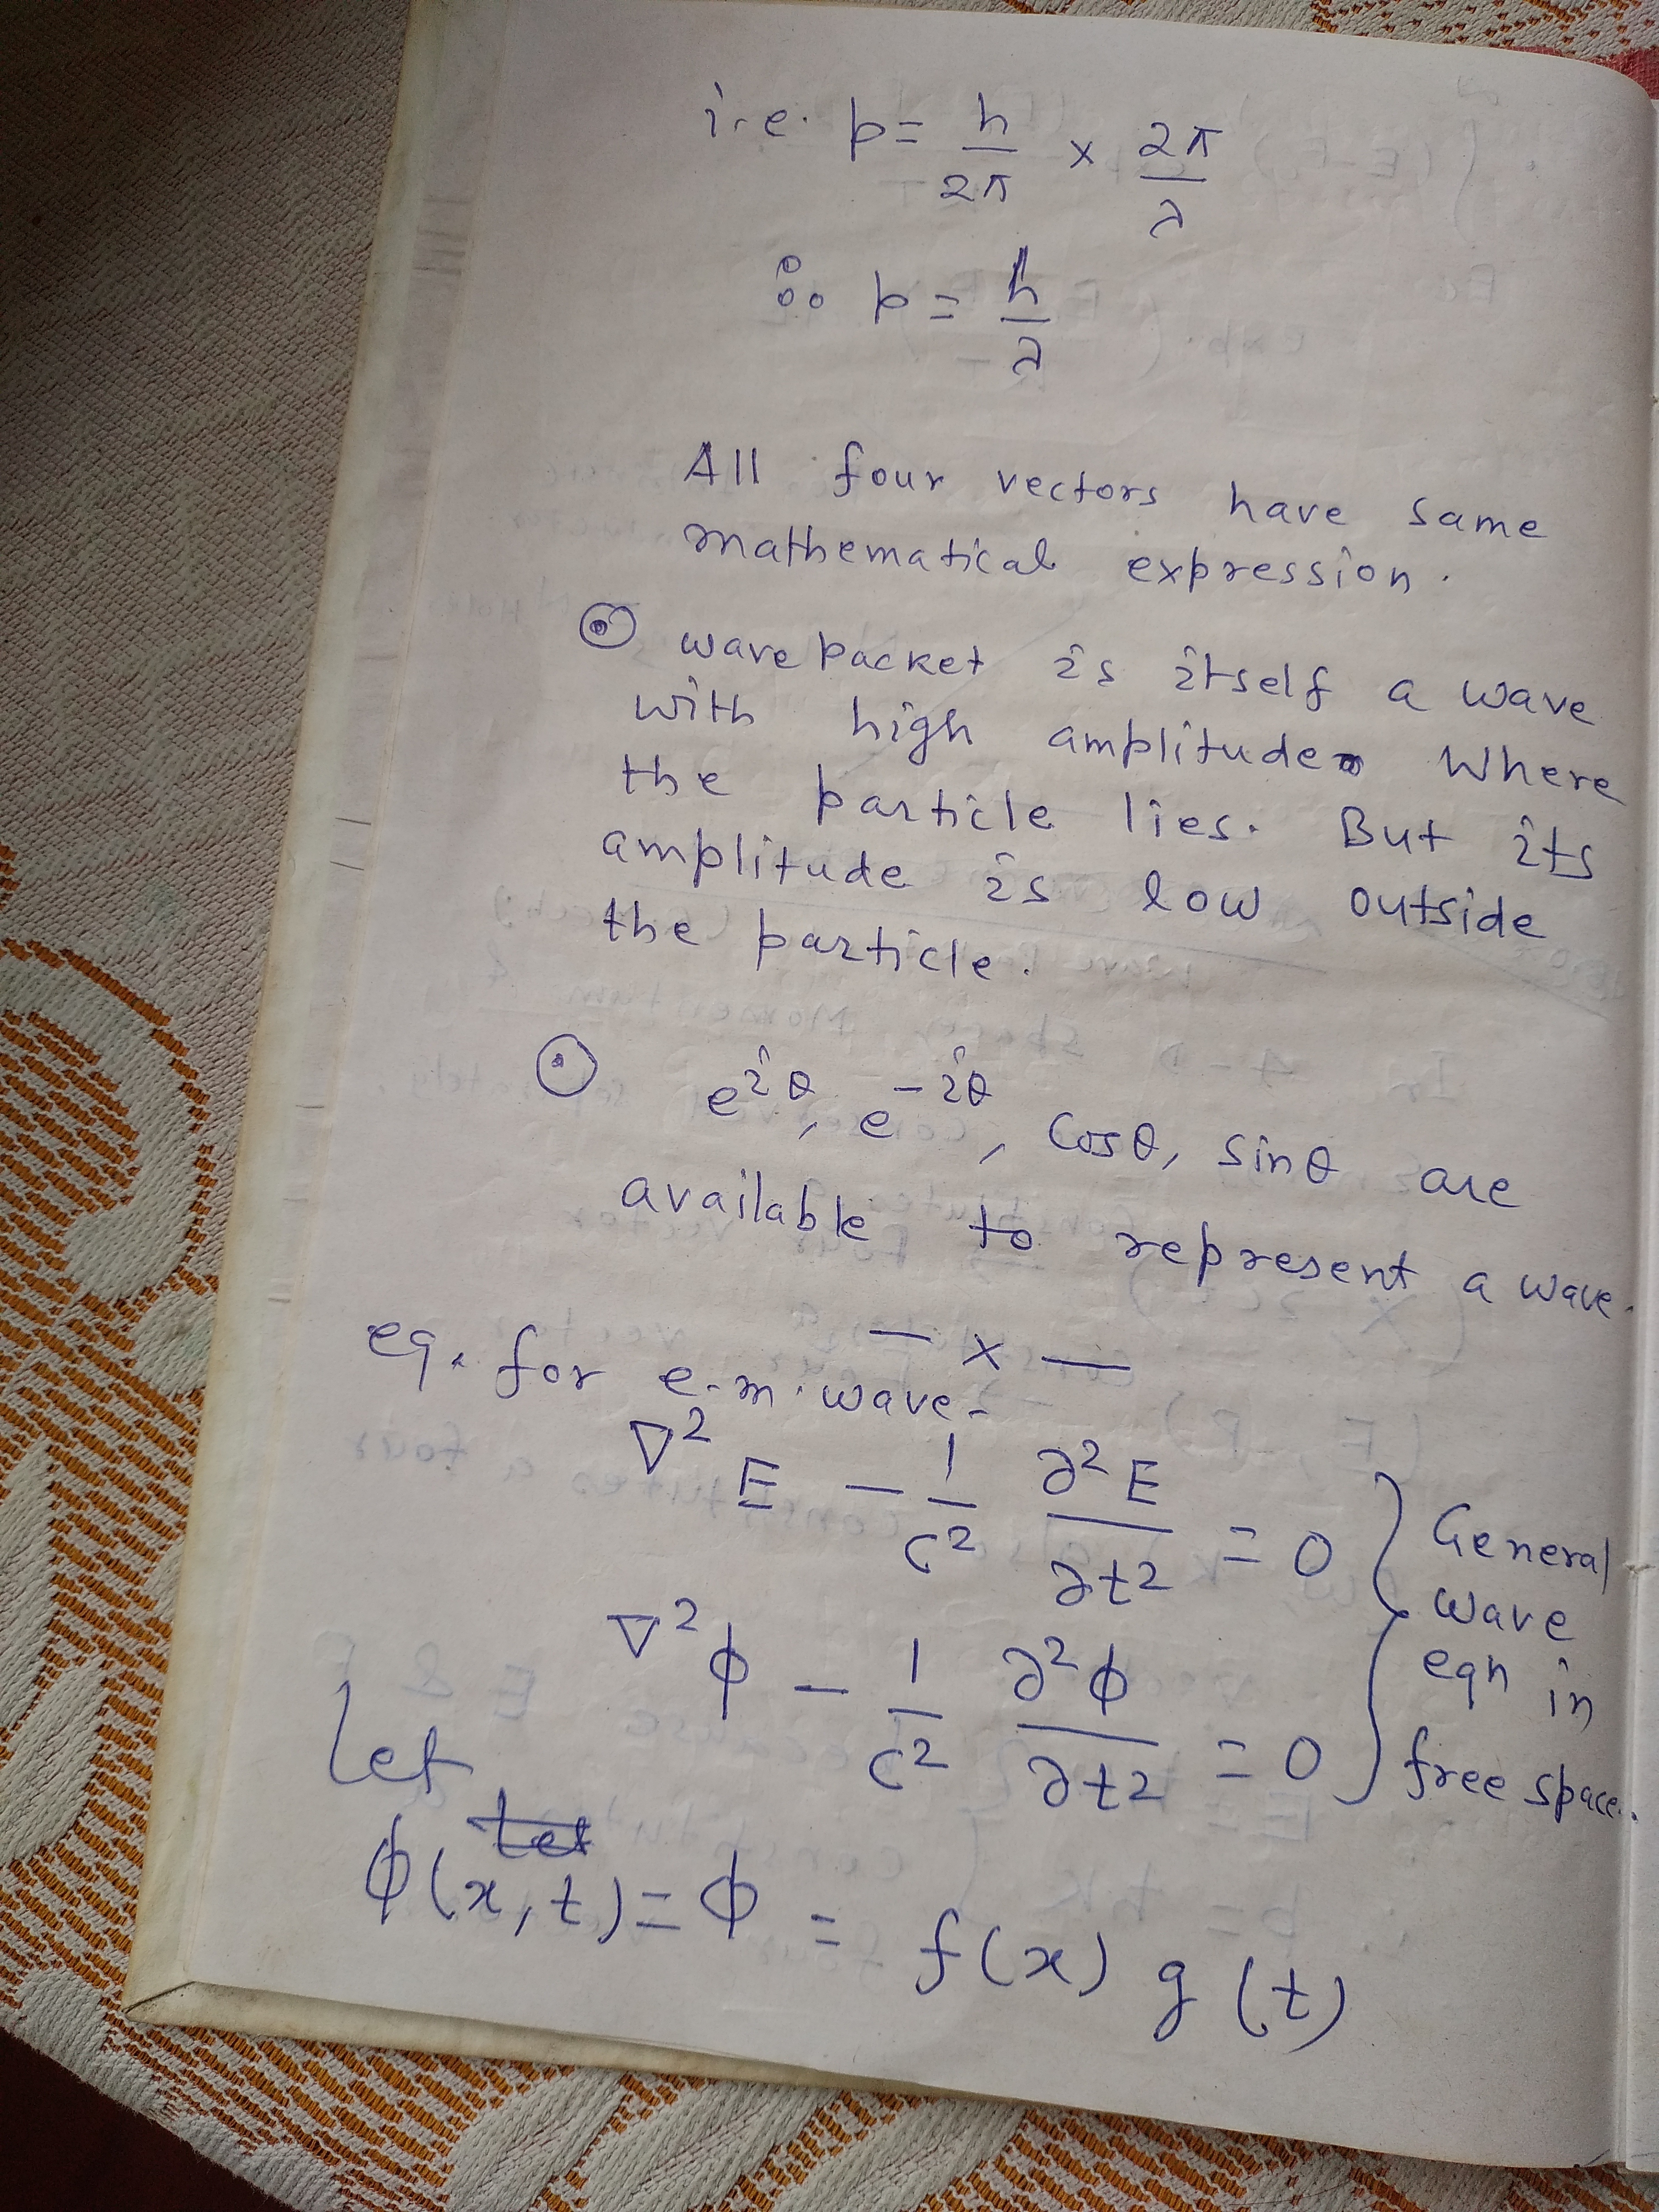 i.e. p = h/2π × 2π/λ
∴ p = h/λ
All four vectors have same
mathematical expression.
⊙ wave packet is itself a wave
with high amplitude Where
the particle lies. But its
amplitude is low outside
the particle.
⊙ e^iθ, e^-iθ, Cosθ, Sinθ are
available to represent a wave.
— x —
eq. for e.m. wave-
∇² E - 1/c² ∂²E/∂t² = 0 } General
wave
eqn in
free space.
∇² ϕ - 1/c² ∂²ϕ/∂t² = 0
Let
ϕ(x,t) = ϕ = f(x) g(t)